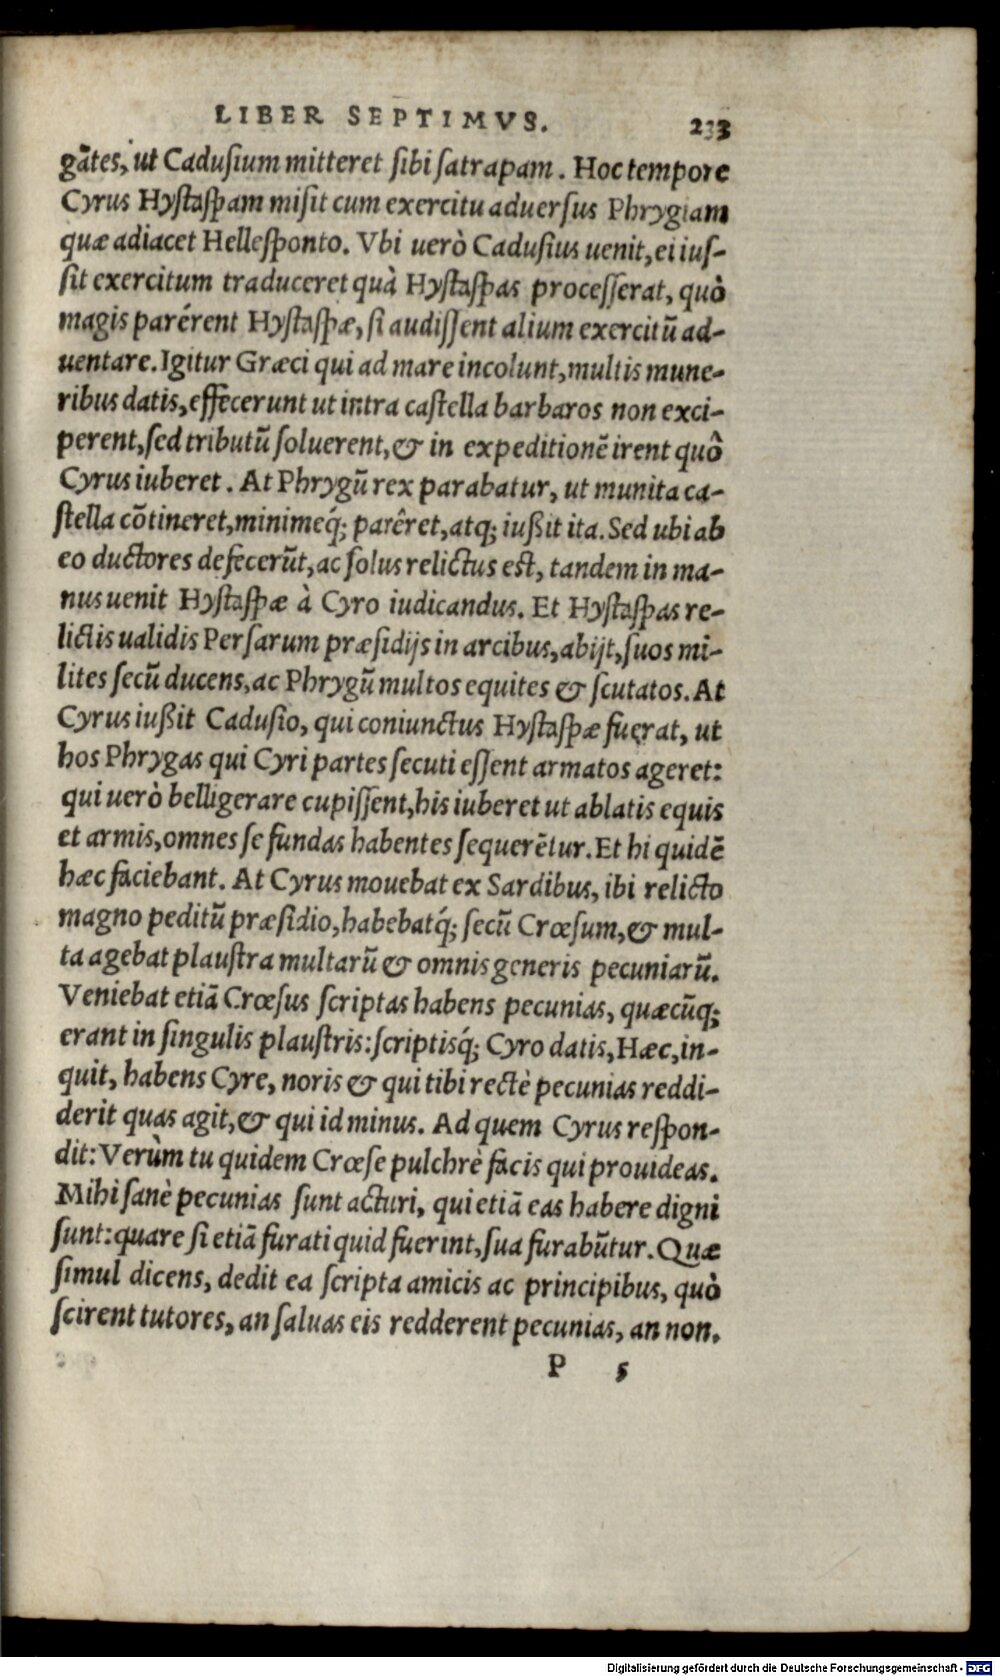 LIBER SEPTIMVS. 233
gātes, ut Cadusium mitteret sibi satrapam. Hoc tempore
Cyrus Hystaspam misit cum exercitu aduersus Phrygiam
quæ adiacet Hellesponto. Vbi uerò Cadusius uenit, ei ius-
sit exercitum traduceret quà Hystaspas processerat, quò
magis parérent Hystaspæ, si audissent alium exercitū ad-
uentare. Igitur Græci qui ad mare incolunt, multis mune-
ribus datis, effecerunt ut intra castella barbaros non exci-
perent, sed tributū soluerent, & in expeditionē irent quô
Cyrus iuberet. At Phrygū rex parabatur, ut munita ca-
stella cōtineret, minimeq́; parêret, atq; iußit ita. Sed ubi ab
eo ductores defecerūt, ac solus relictus est, tandem in ma-
nus uenit Hystaspæ à Cyro iudicandus. Et Hystaspas re-
lictis ualidis Persarum præsidijs in arcibus, abijt, suos mi-
lites secū ducens, ac Phrygū multos equites & scutatos. At
Cyrus iußit Cadusio, qui coniunctus Hystaspæ fuerat, ut
hos Phrygas qui Cyri partes secuti essent armatos ageret:
qui uerò belligerare cupissent, his iuberet ut ablatis equis
et armis, omnes se fundas habentes sequerētur. Et hi quidē
hæc faciebant. At Cyrus mouebat ex Sardibus, ibi relicto
magno peditū præsidio, habebatq́; secū Crœsum, & mul-
ta agebat plaustra multarū & omnis generis pecuniarū.
Veniebat etiā Crœsus scriptas habens pecunias, quæcūq;
erant in singulis plaustris: scriptisq́; Cyro datis, Hæc, in-
quit, habens Cyre, noris & qui tibi rectè pecunias reddi-
derit quas agit, & qui id minus. Ad quem Cyrus respon-
dit: Verùm tu quidem Crœse pulchrè facis qui prouideas.
Mihi sanè pecunias sunt acturi, qui etiā eas habere digni
sunt: quare si etiā furati quid fuerint, sua furabūtur. Quæ
simul dicens, dedit ea scripta amicis ac principibus, quò
scirent tutores, an saluas eis redderent pecunias, an non.
P 5
Digitalisierung gefördert durch die Deutsche Forschungsgemeinschaft - DFG